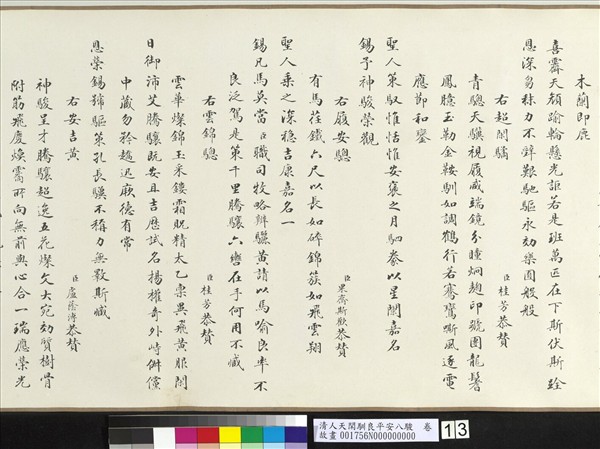 木蘭即鹿
喜霽天顔瑜輪懸光詎若是班萬匹在下斯伏斯跧
恩深芻秣力不辭艱馳驅永効樂國般般
右超閑驈 臣桂芳恭贊
青驄天驥視履咸端鏡分瞳炯印號圉龍鬐
鳳臆玉勒金鞍馴如調鶴行若騫鸞嘶風逐電
應節和鑾
聖人策馭惟恬惟安褒之月駟豢以星閑嘉名
錫予神駿榮觀
右履安驄 臣果齊斯歡恭贊
有馬鐵六尺以長如碎錦簇如飛雲翔
聖人乗之深穩吉康嘉名一
錫凡馬莫當臣職司牧略辨驪黄請以馬喻良率不
良泛駕是策千里騰驤六轡在手何用不臧
右雲錦驄 臣桂芳恭贊
雲華燦錦玉采鏤霜既精太乙禀異飛黄服閑
日御沛艾騰驤既安且吉歷試名揚權奇外峙儻
中藏勿矜趫迅厥德有常
恩榮錫號驅策孔長驥不稱力無斁斯臧
右安吉黄 臣盧蔭溥恭贊
神駿呈才騰驤超逸五花燦文大宛効質樹骨
附筋飛煥霱所向無前與心合一瑞應榮光
清人天閑馴良平安八駿 卷
故畫 001756N000000000
13